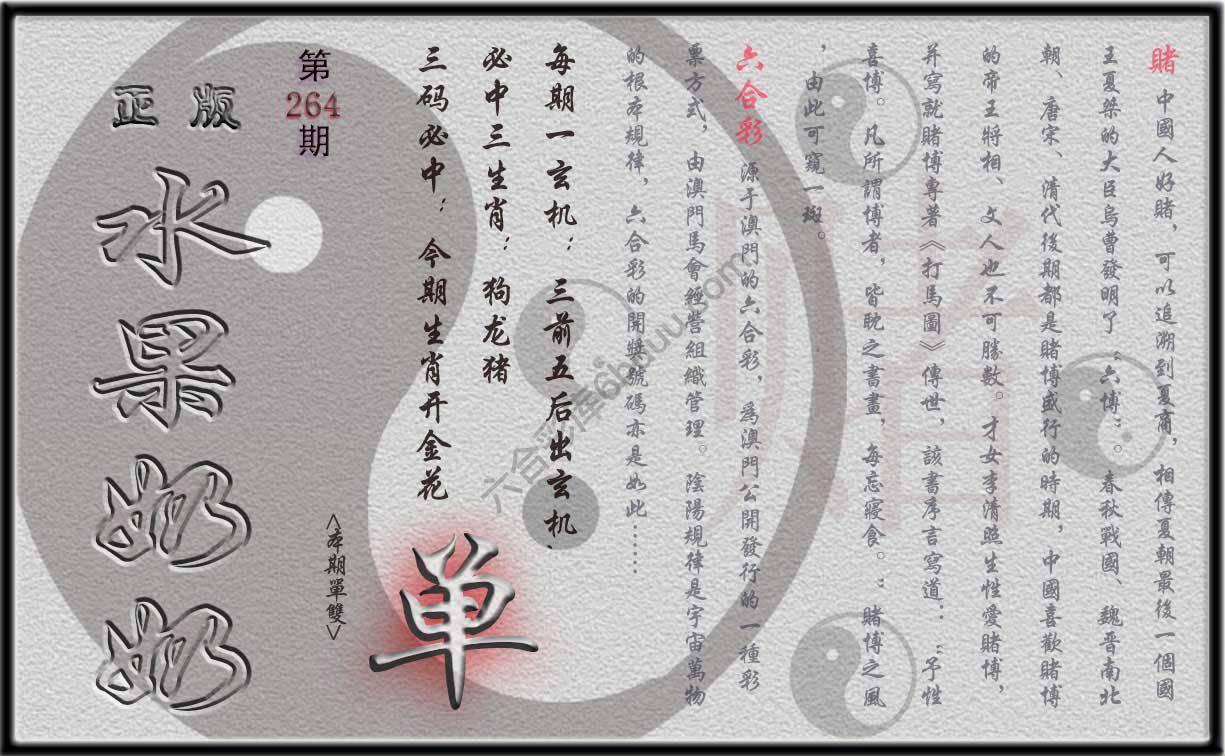 賭 中國人好賭，可以追溯到夏商，相傳夏朝最後一個國
王夏桀的大臣烏曹發明了“六博”。春秋戰國、魏晋南北
朝、唐宋、清代後期都是賭博盛行的時期，中國喜歡賭博
的帝王將相、文人也不可勝數。才女李清照生性愛賭博，
并寫就賭博專著《打馬圖》傳世，該書序言寫道：“予性
喜博。凡所謂博者，皆眈之書畫，每忘寢食。：賭博之風
，由此可窺一斑。
六合彩 源于澳門的六合彩，爲澳門公開發行的一種彩
票方式，由澳門馬會經營組織管理。陰陽規律是宇宙萬物
的根本規律，六合彩的開獎號碼亦是如此……
每期一玄机：三前五后出玄机
必中三生肖：狗龙猪
三码必中：今期生肖开金花
第
264
期
<本期單雙>
单
正版
水果奶奶
賭
六合彩库6huuu.com